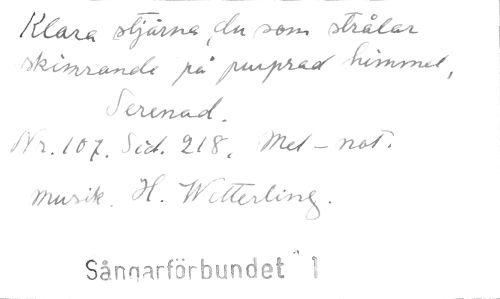 Klara stjärna, du som strålar
skimrande på purprad himmel,
Serenad.
Nr. 107. Sid. 218. Mel-not.
musik. H. Wetterling.
Sångarförbundet 1